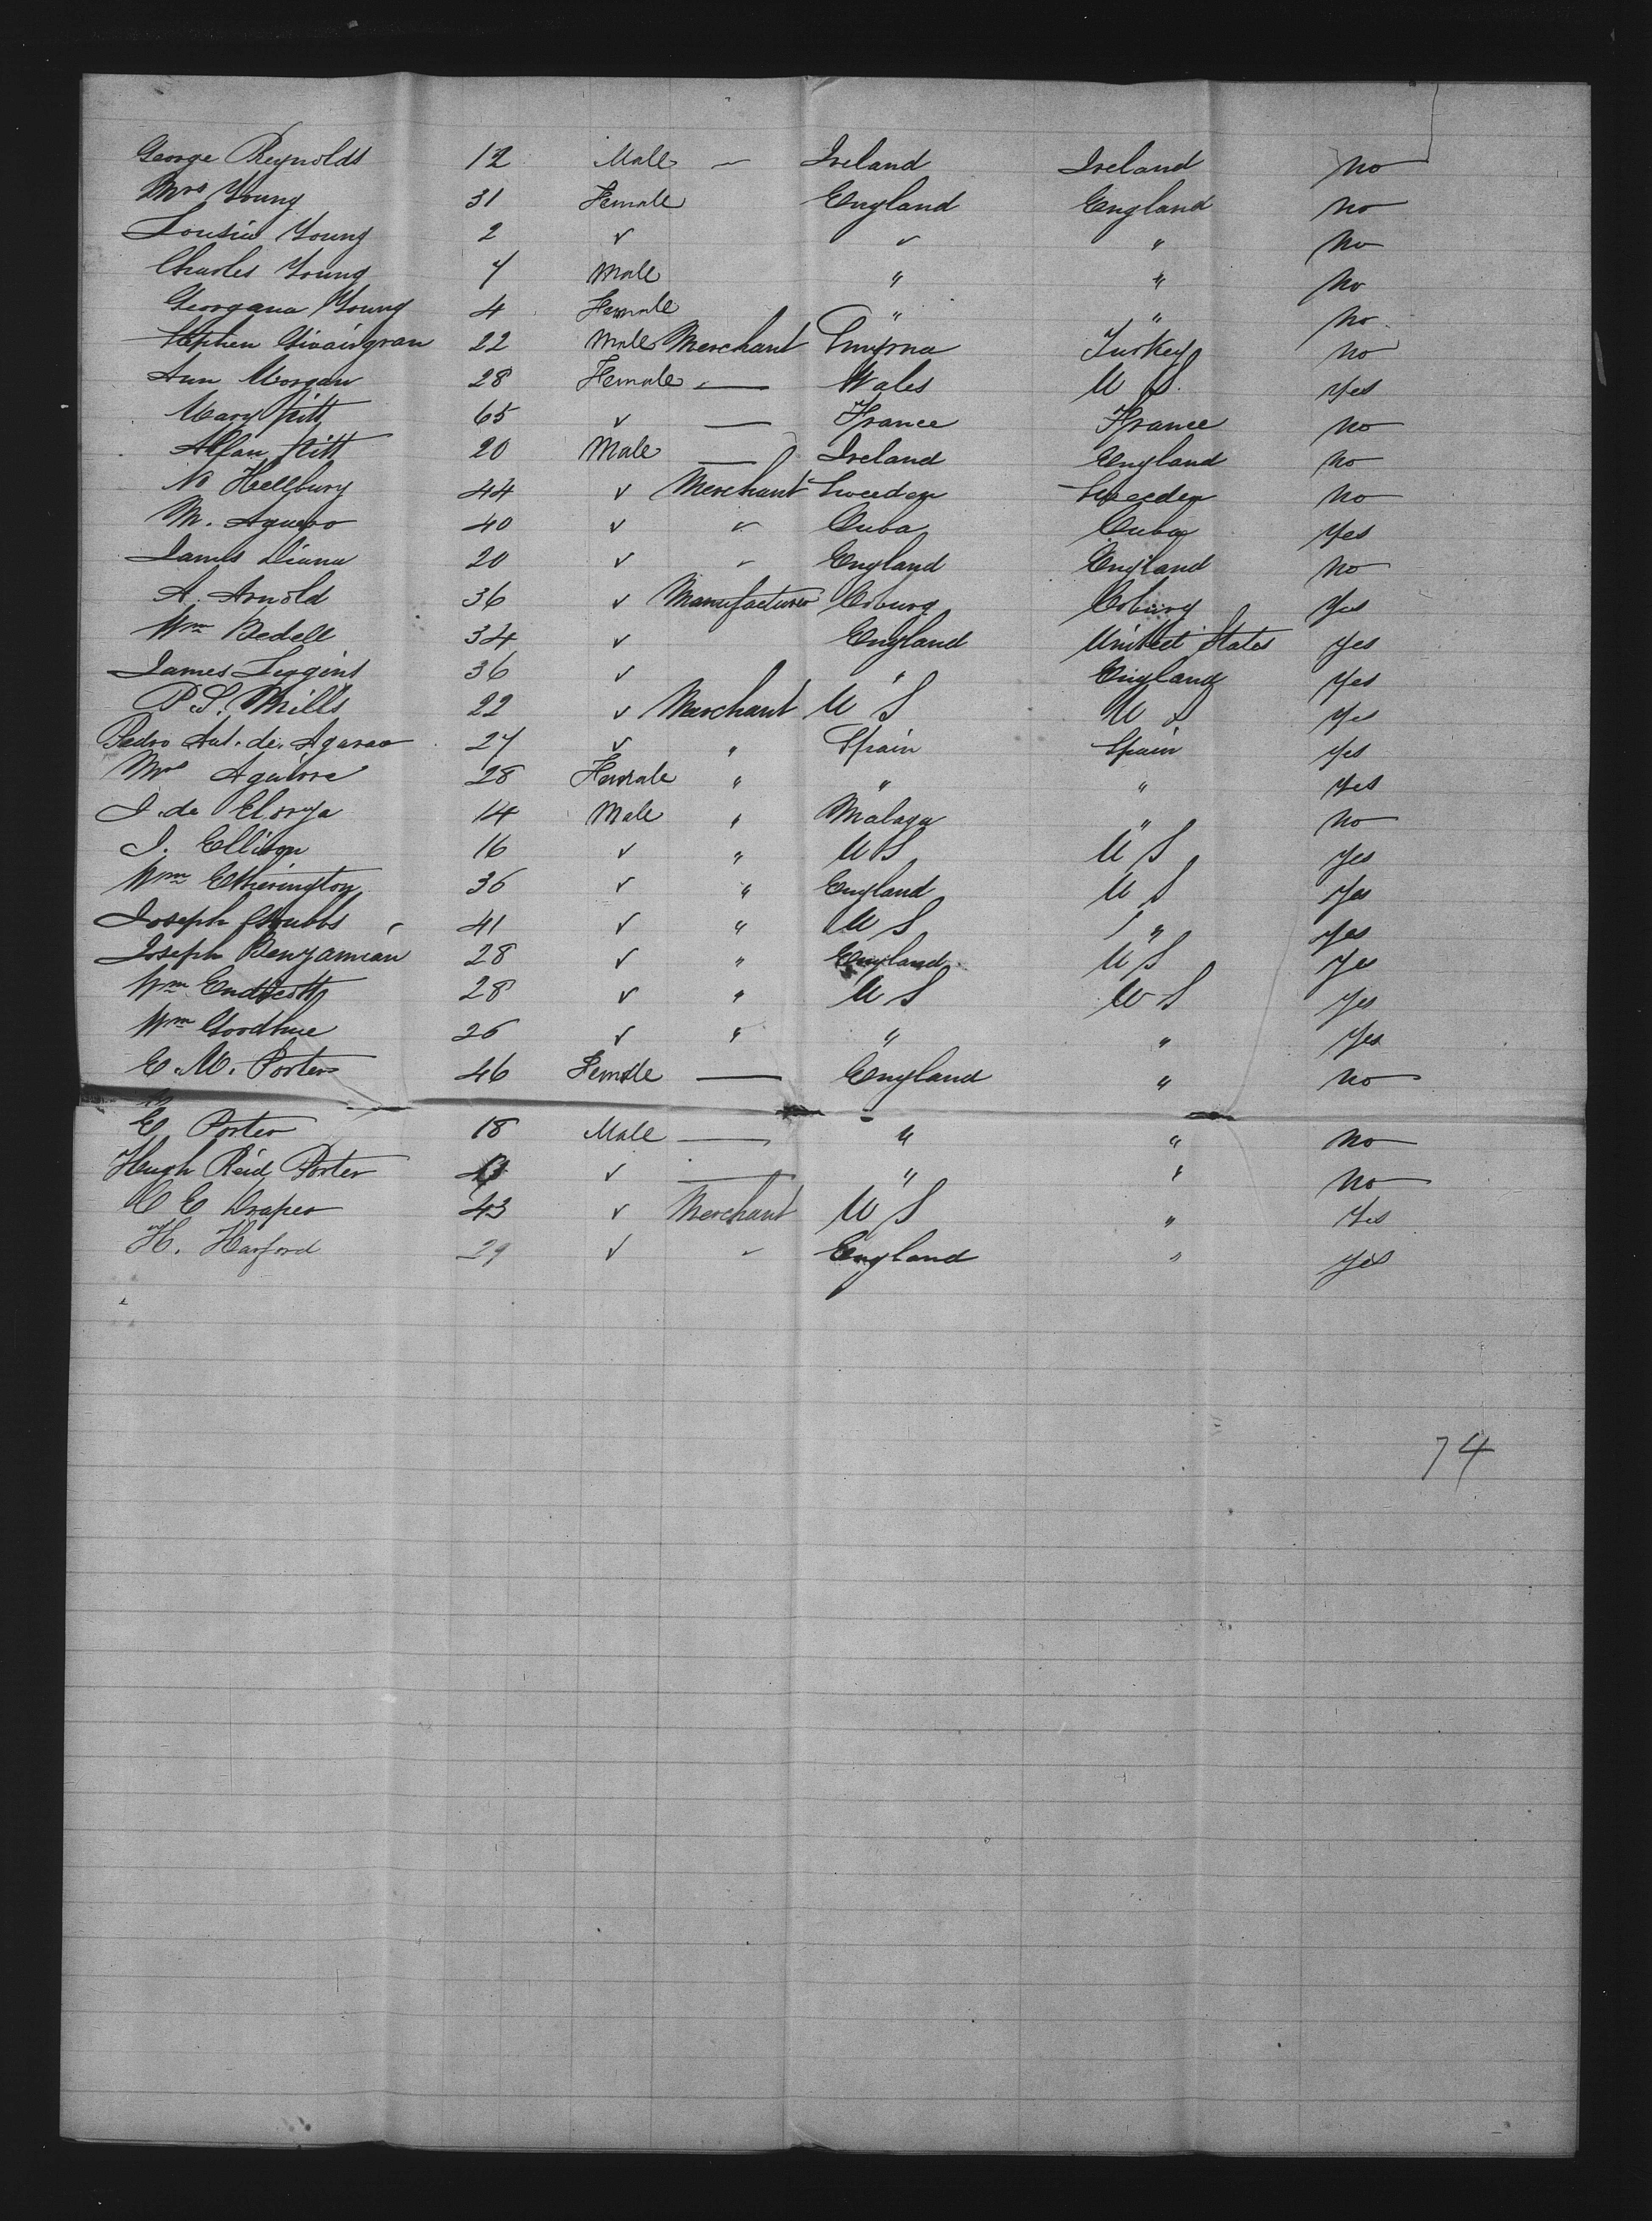 George Reynolds 12 Male — Ireland Ireland no
Mrs Young 31 Female England England no
Lousia Young 2 " " " no
Charles Young 7 Male " " no
Georgana Young 4 Female " " no
Stephen 22 Male Merchant Smyrna Turkey no
Ann Morgan 28 Female — Wales U S. yes
Mary Pitt 65 " — France France no
Allan Pitt 20 Male — Ireland England no
N Hellburg 44 " Merchant Sweeden Sweeden no
M. Aguero 40 " " Cuba Cuba yes
James Diana 20 " " England England no
A. Arnold 36 " Manufacturer Coburg Coburg yes
Wm Bedell 34 " England United States yes
James Liggins 36 " " England yes
P. S. Mills 22 " Merchant U S U S yes
Pedro Ant. de 27 " " Spain Spain yes
Mrs Aguirre 28 Female " " " yes
J. de Elorza 14 Male " Malaga " no
J. Ellison 16 " " U S U S yes
Wm Etherington 36 " " England U S yes
Joseph Stubbs 41 " " U S " yes
Joseph Benjamian 28 " " England U S yes
Wm Endicott 28 " " U S U S yes
Wm Goodhue 26 " " " " yes
E. M. Porter 46 Female — England " no
E Porter 18 Male — " " no
Hugh Reid Porter " — " " no
C E Draper 43 " Merchant U S " yes
H. Harford 29 " " England " yes
74